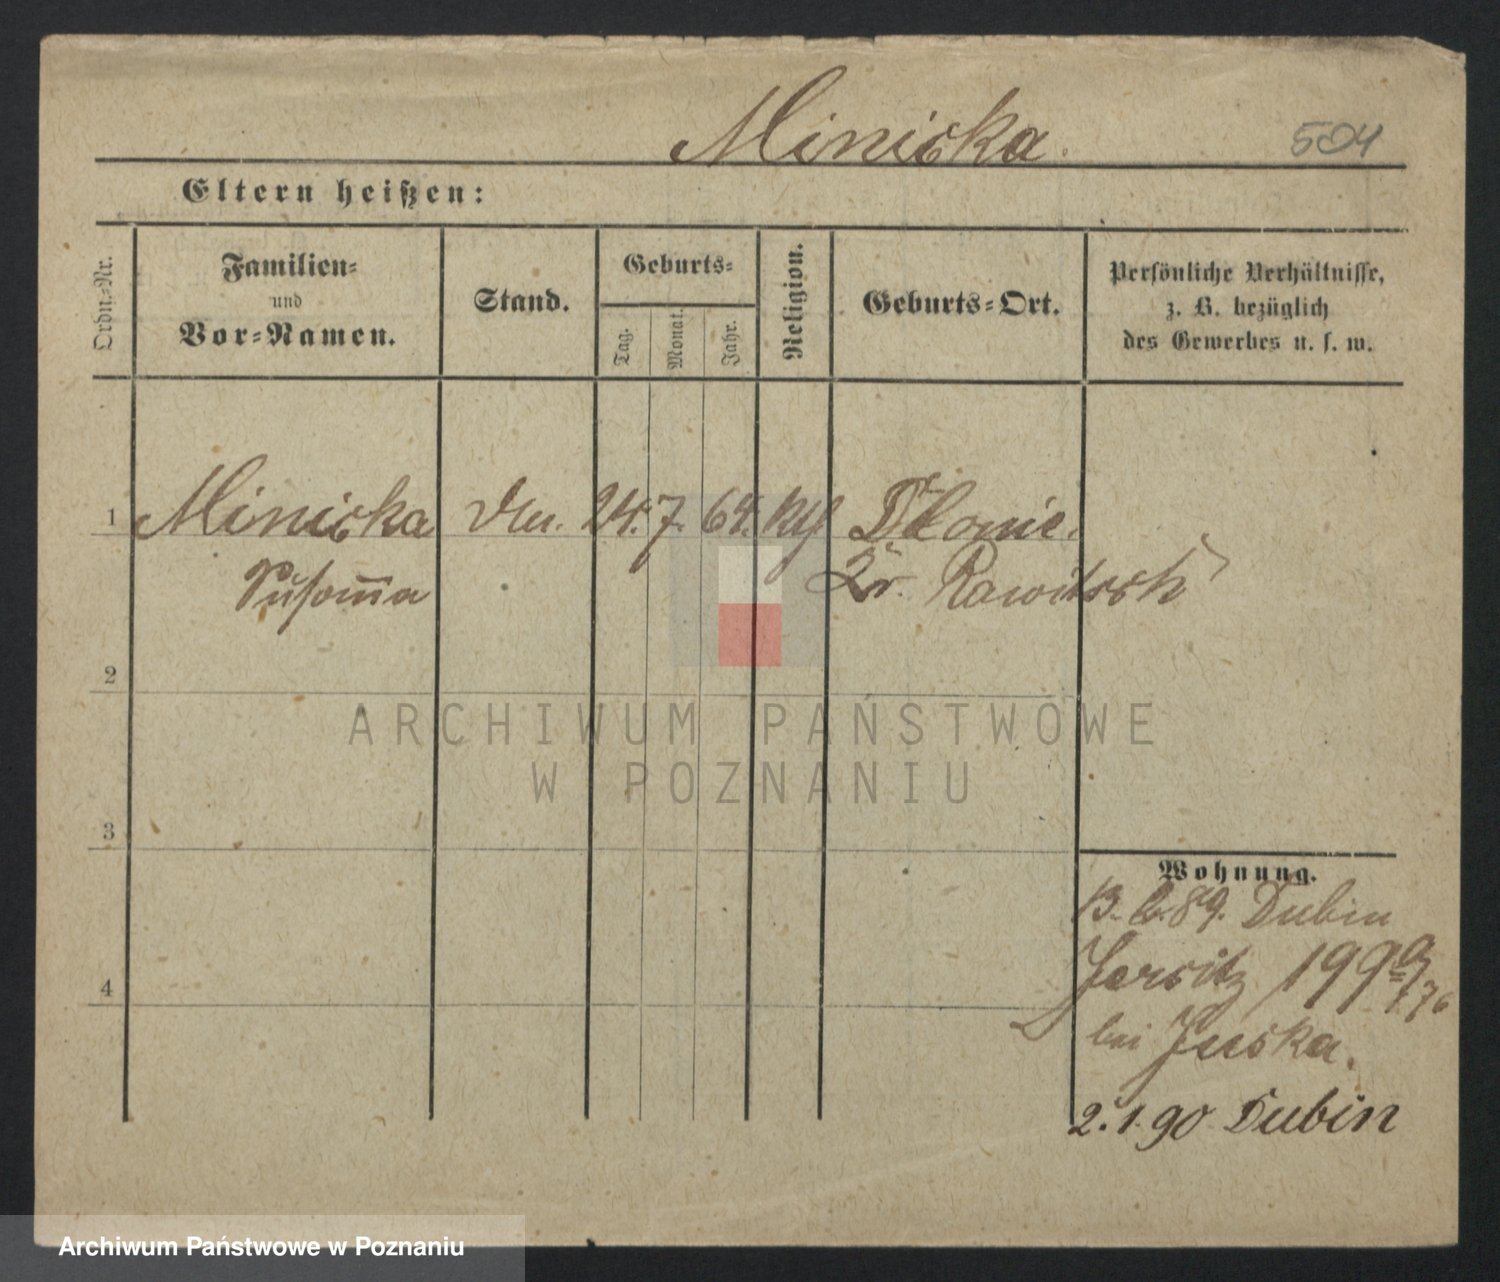 Minicka.
504
Eltern heißen:
Ordn.-Nr.
Familien-
und
Vor-Namen.
Stand.
Geburts-
Tag.
Monat.
Jahr.
Religion.
Geburts-Ort.
Persönliche Verhältnisse,
z. B. bezüglich
des Gewerbes u. s. w.
1 Minicka 24. 7. 64. Dłonie.
Kr. Rawitsch
2
3
4
ARCHIWUM PAŃSTWOWE
W POZNANIU
Wohnung.
89. Dubin
Jersitz 199
bei Juska.
2.1.90 Dubin
Archiwum Państwowe w Poznaniu